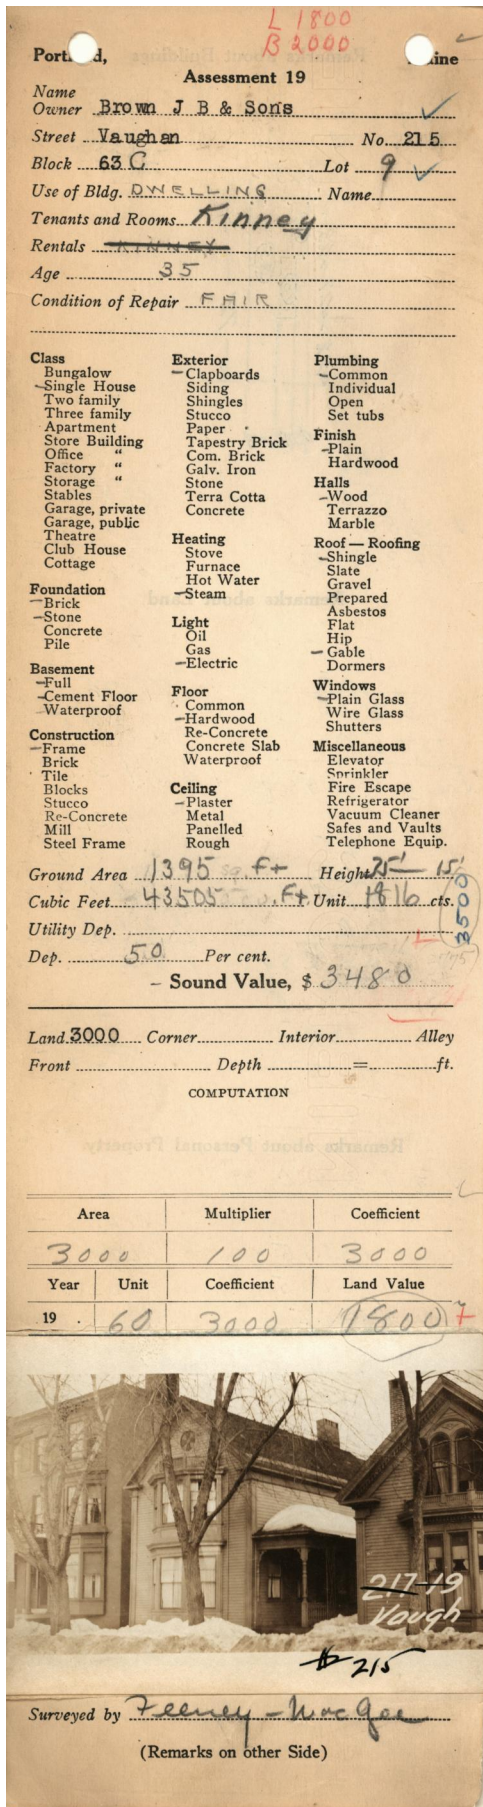 L 1800
B 2000
Portland, Maine
Assessment 19
Name
Owner Brown J B & Sons
Street Vaughan No. 215
Block 63 C Lot 9
Use of Bldg. DWELLING Name
Tenants and Rooms Kinney
Rentals KINNEY
Age 35
Condition of Repair FAIR
Class
Bungalow
Single House
Two family
Three family
Apartment
Store Building
Office "
Factory "
Storage "
Stables
Garage, private
Garage, public
Theatre
Club House
Cottage
Foundation
Brick
Stone
Concrete
Pile
Basement
Full
Cement Floor
Waterproof
Construction
Frame
Brick
Tile
Blocks
Stucco
Re-Concrete
Mill
Steel Frame
Exterior
Clapboards
Siding
Shingles
Stucco
Paper
Tapestry Brick
Com. Brick
Galv. Iron
Stone
Terra Cotta
Concrete
Heating
Stove
Furnace
Hot Water
Steam
Light
Oil
Gas
Electric
Floor
Common
Hardwood
Re-Concrete
Concrete Slab
Waterproof
Ceiling
Plaster
Metal
Panelled
Rough
Plumbing
Common
Individual
Open
Set tubs
Finish
Plain
Hardwood
Halls
Wood
Terrazzo
Marble
Roof — Roofing
Shingle
Slate
Gravel
Prepared
Asbestos
Flat
Hip
Gable
Dormers
Windows
Plain Glass
Wire Glass
Shutters
Miscellaneous
Elevator
Sprinkler
Fire Escape
Refrigerator
Vacuum Cleaner
Safes and Vaults
Telephone Equip.
Ground Area 1395 Ft Height 25' 15'
Cubic Feet 43505 Ft Unit 16 cts.
3500
Utility Dep.
Dep. 50 Per cent.
Sound Value, $ 3480
Land 3000 Corner Interior Alley
Front Depth = ft.
COMPUTATION
Area Multiplier Coefficient
3000 100 3000
Year Unit Coefficient Land Value
19 60 3000 1800
217-19
Vaugh
# 215
Surveyed by Feeney - MacGee
(Remarks on other Side)